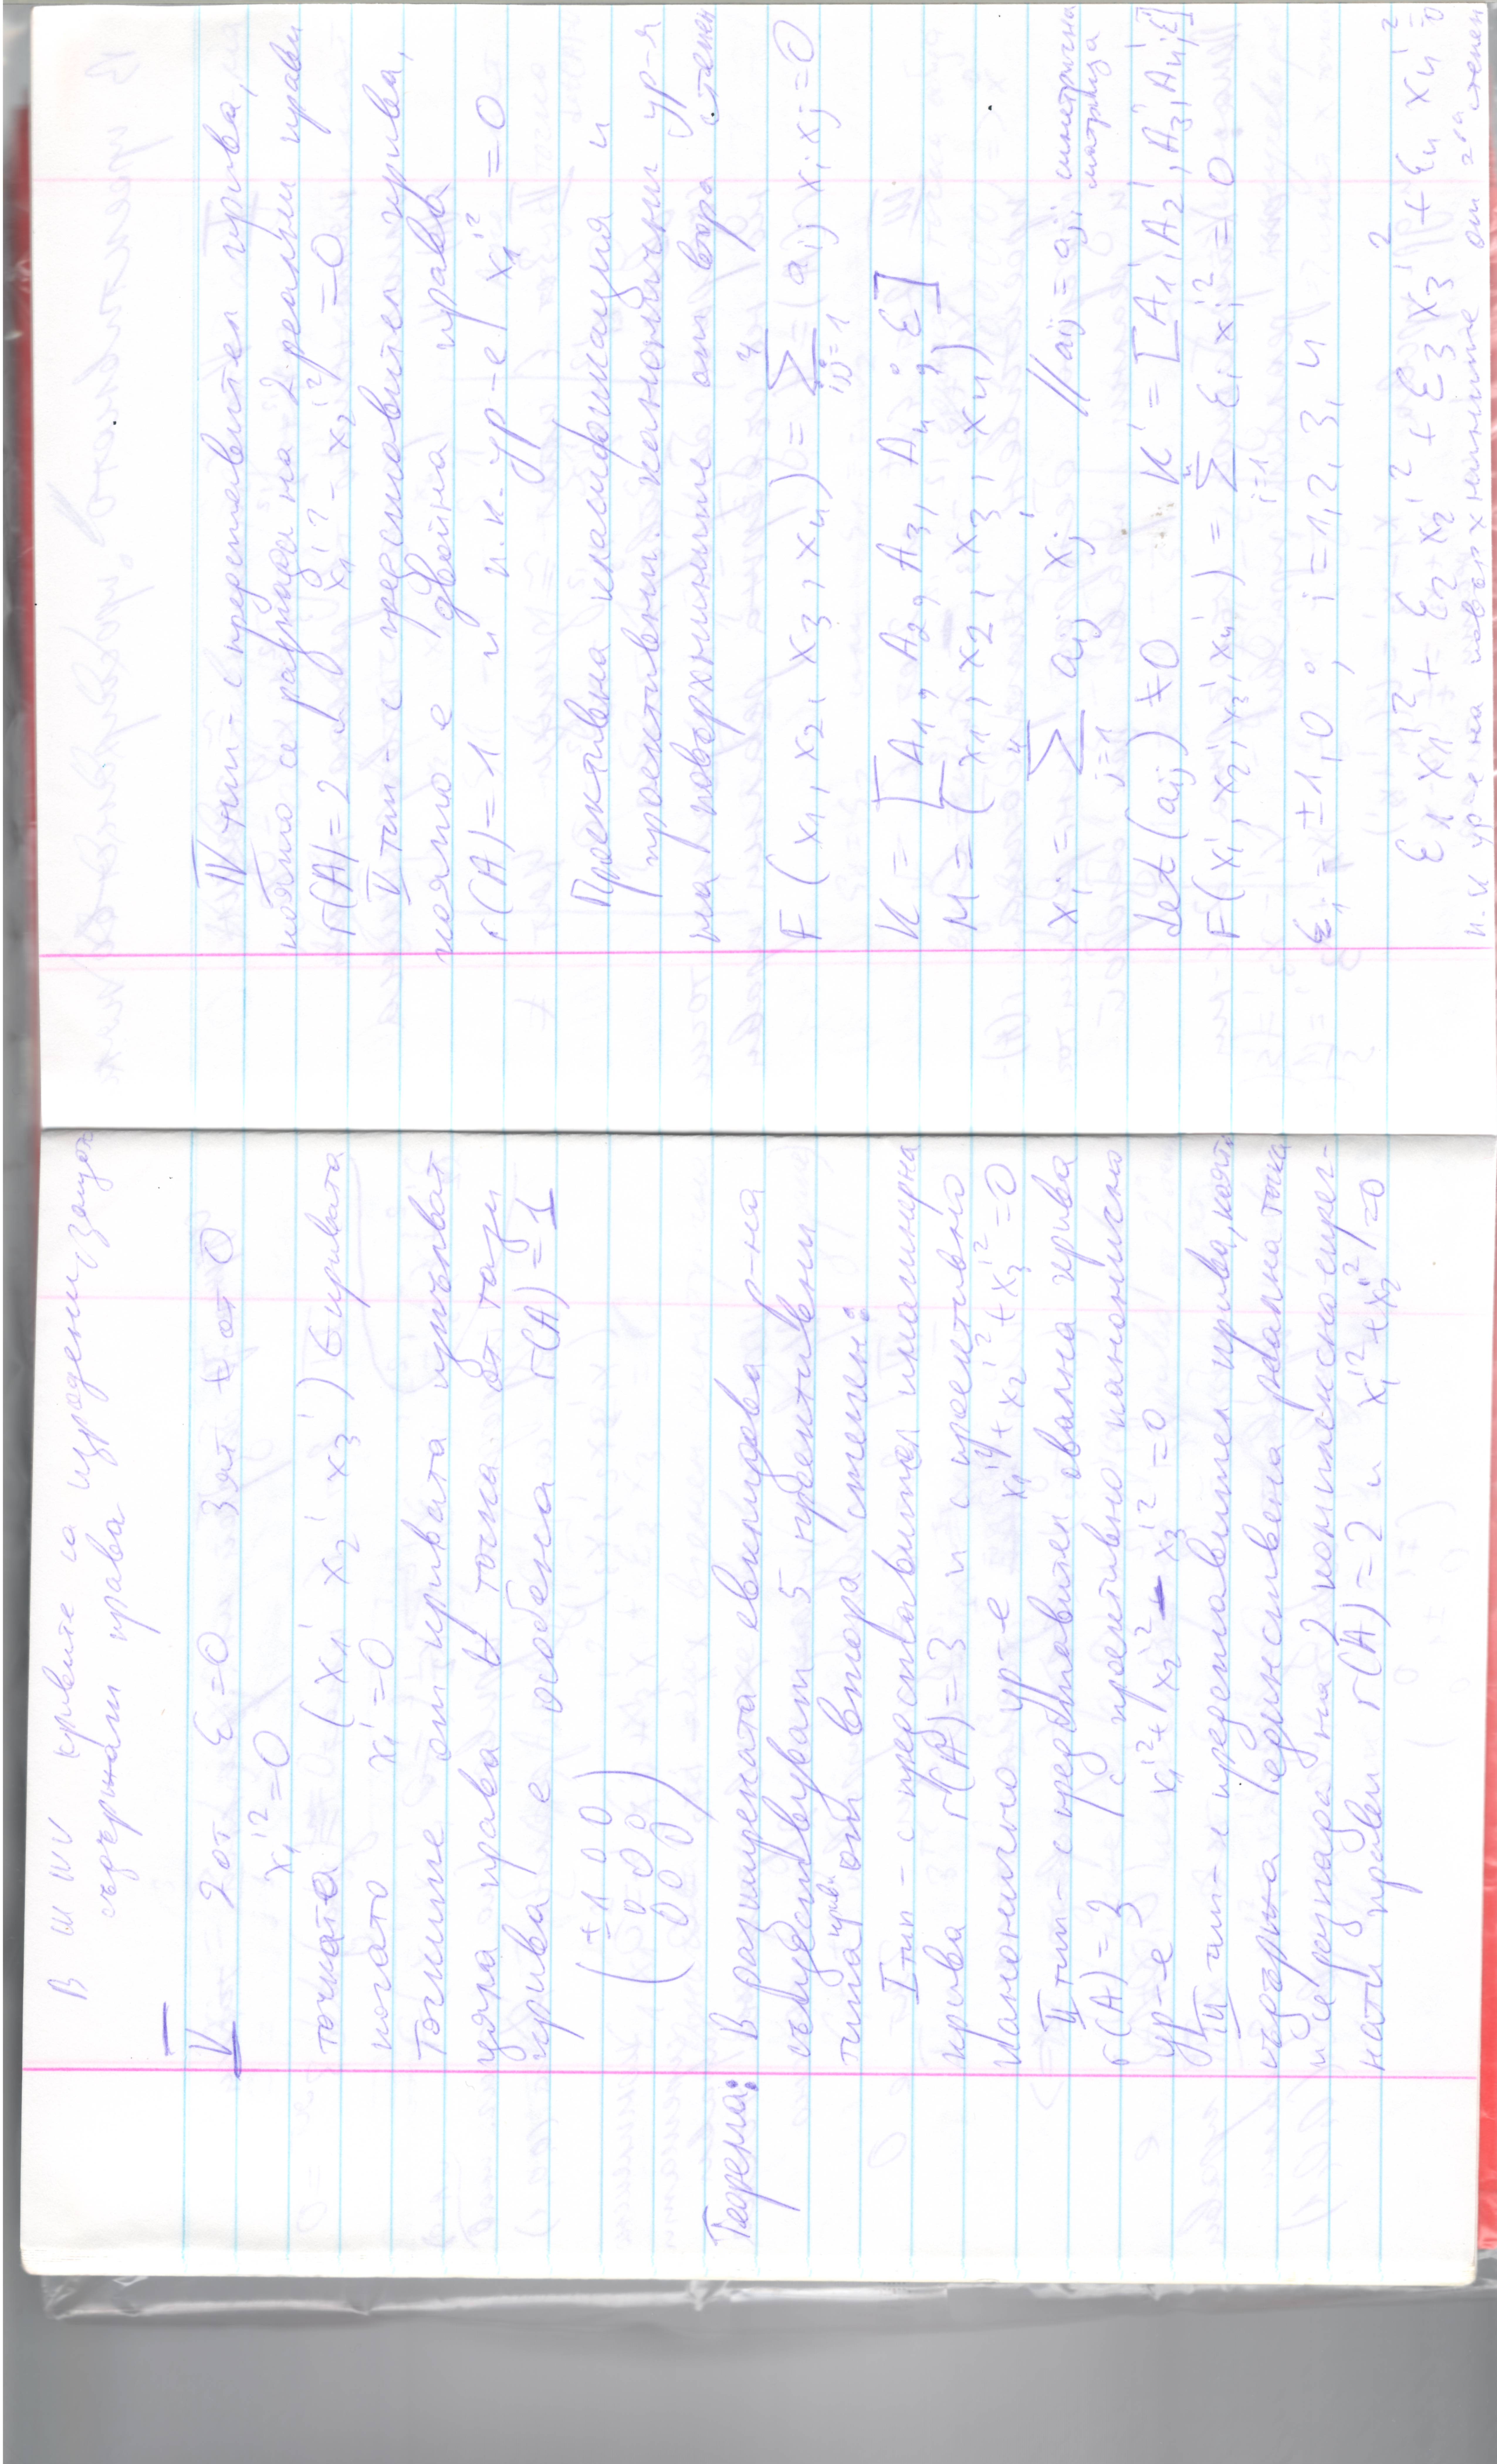 В III IV V кривите са изродени, защото
съдържат права
V 2 от ε=0 3ят ≠ от 0
x₁'²=0
точката (x₁' x₂' x₃') ∈ кривата
когато x₁'=0
Точките от кривата изчерпват
цяла права ∀ точка от тази
крива е особена r(A)=1
(±1 0 0
0 0 0
0 0 0)
Теорема: В разширената евклидова р-на
съществуват 5 проективни
типа криви от втора степен:
I тип - с представител имагинерна
крива r(A)=3 и с проективно
канонично ур-е x₁'²+x₂'²+x₃'²=0
II тип - с представител овална крива
r(A)=3 с проективно канонично
ур-е x₁'²+x₂'²-x₃'²=0
III тип - с представител крива, която
съдържа единствена реална точка
и се разпада на 2 комплексно спрег-
нати прави r(A)=2 и x₁'²+x₂'²=0
IV тип - с представител крива,
която се разпада на 2 реални прави
r(A)=2 x₁'²-x₂'²=0
V тип - с представител крива,
която е двойна права
r(A)=1 и п.к. ур-е x₁'²=0
Проективна класификация и
проективни канонични ур-я
на повърхнините от втора степен
F(x₁, x₂, x₃, x₄) = Σ⁴ᵢ,ⱼ₌₁ aᵢⱼ xᵢ xⱼ = 0
K = [A₁, A₂, A₃, A₄; E]
M = (x₁, x₂, x₃, x₄)
xᵢ = Σ⁴ⱼ₌₁ aᵢⱼ xⱼ' // aᵢⱼ = aⱼᵢ симетрична матрица
det(aᵢⱼ) ≠ 0 K' = [A₁', A₂', A₃', A₄'; E']
F(x₁', x₂', x₃', x₄') = Σ⁴ᵢ₌₁ εᵢ xᵢ'² = 0
εᵢ = ±1, 0 ; i = 1, 2, 3, 4
ε₁ x₁'² + ε₂ x₂'² + ε₃ x₃'² + ε₄ x₄'² = 0
п.к ур-е на повърхнините от 2ра степен